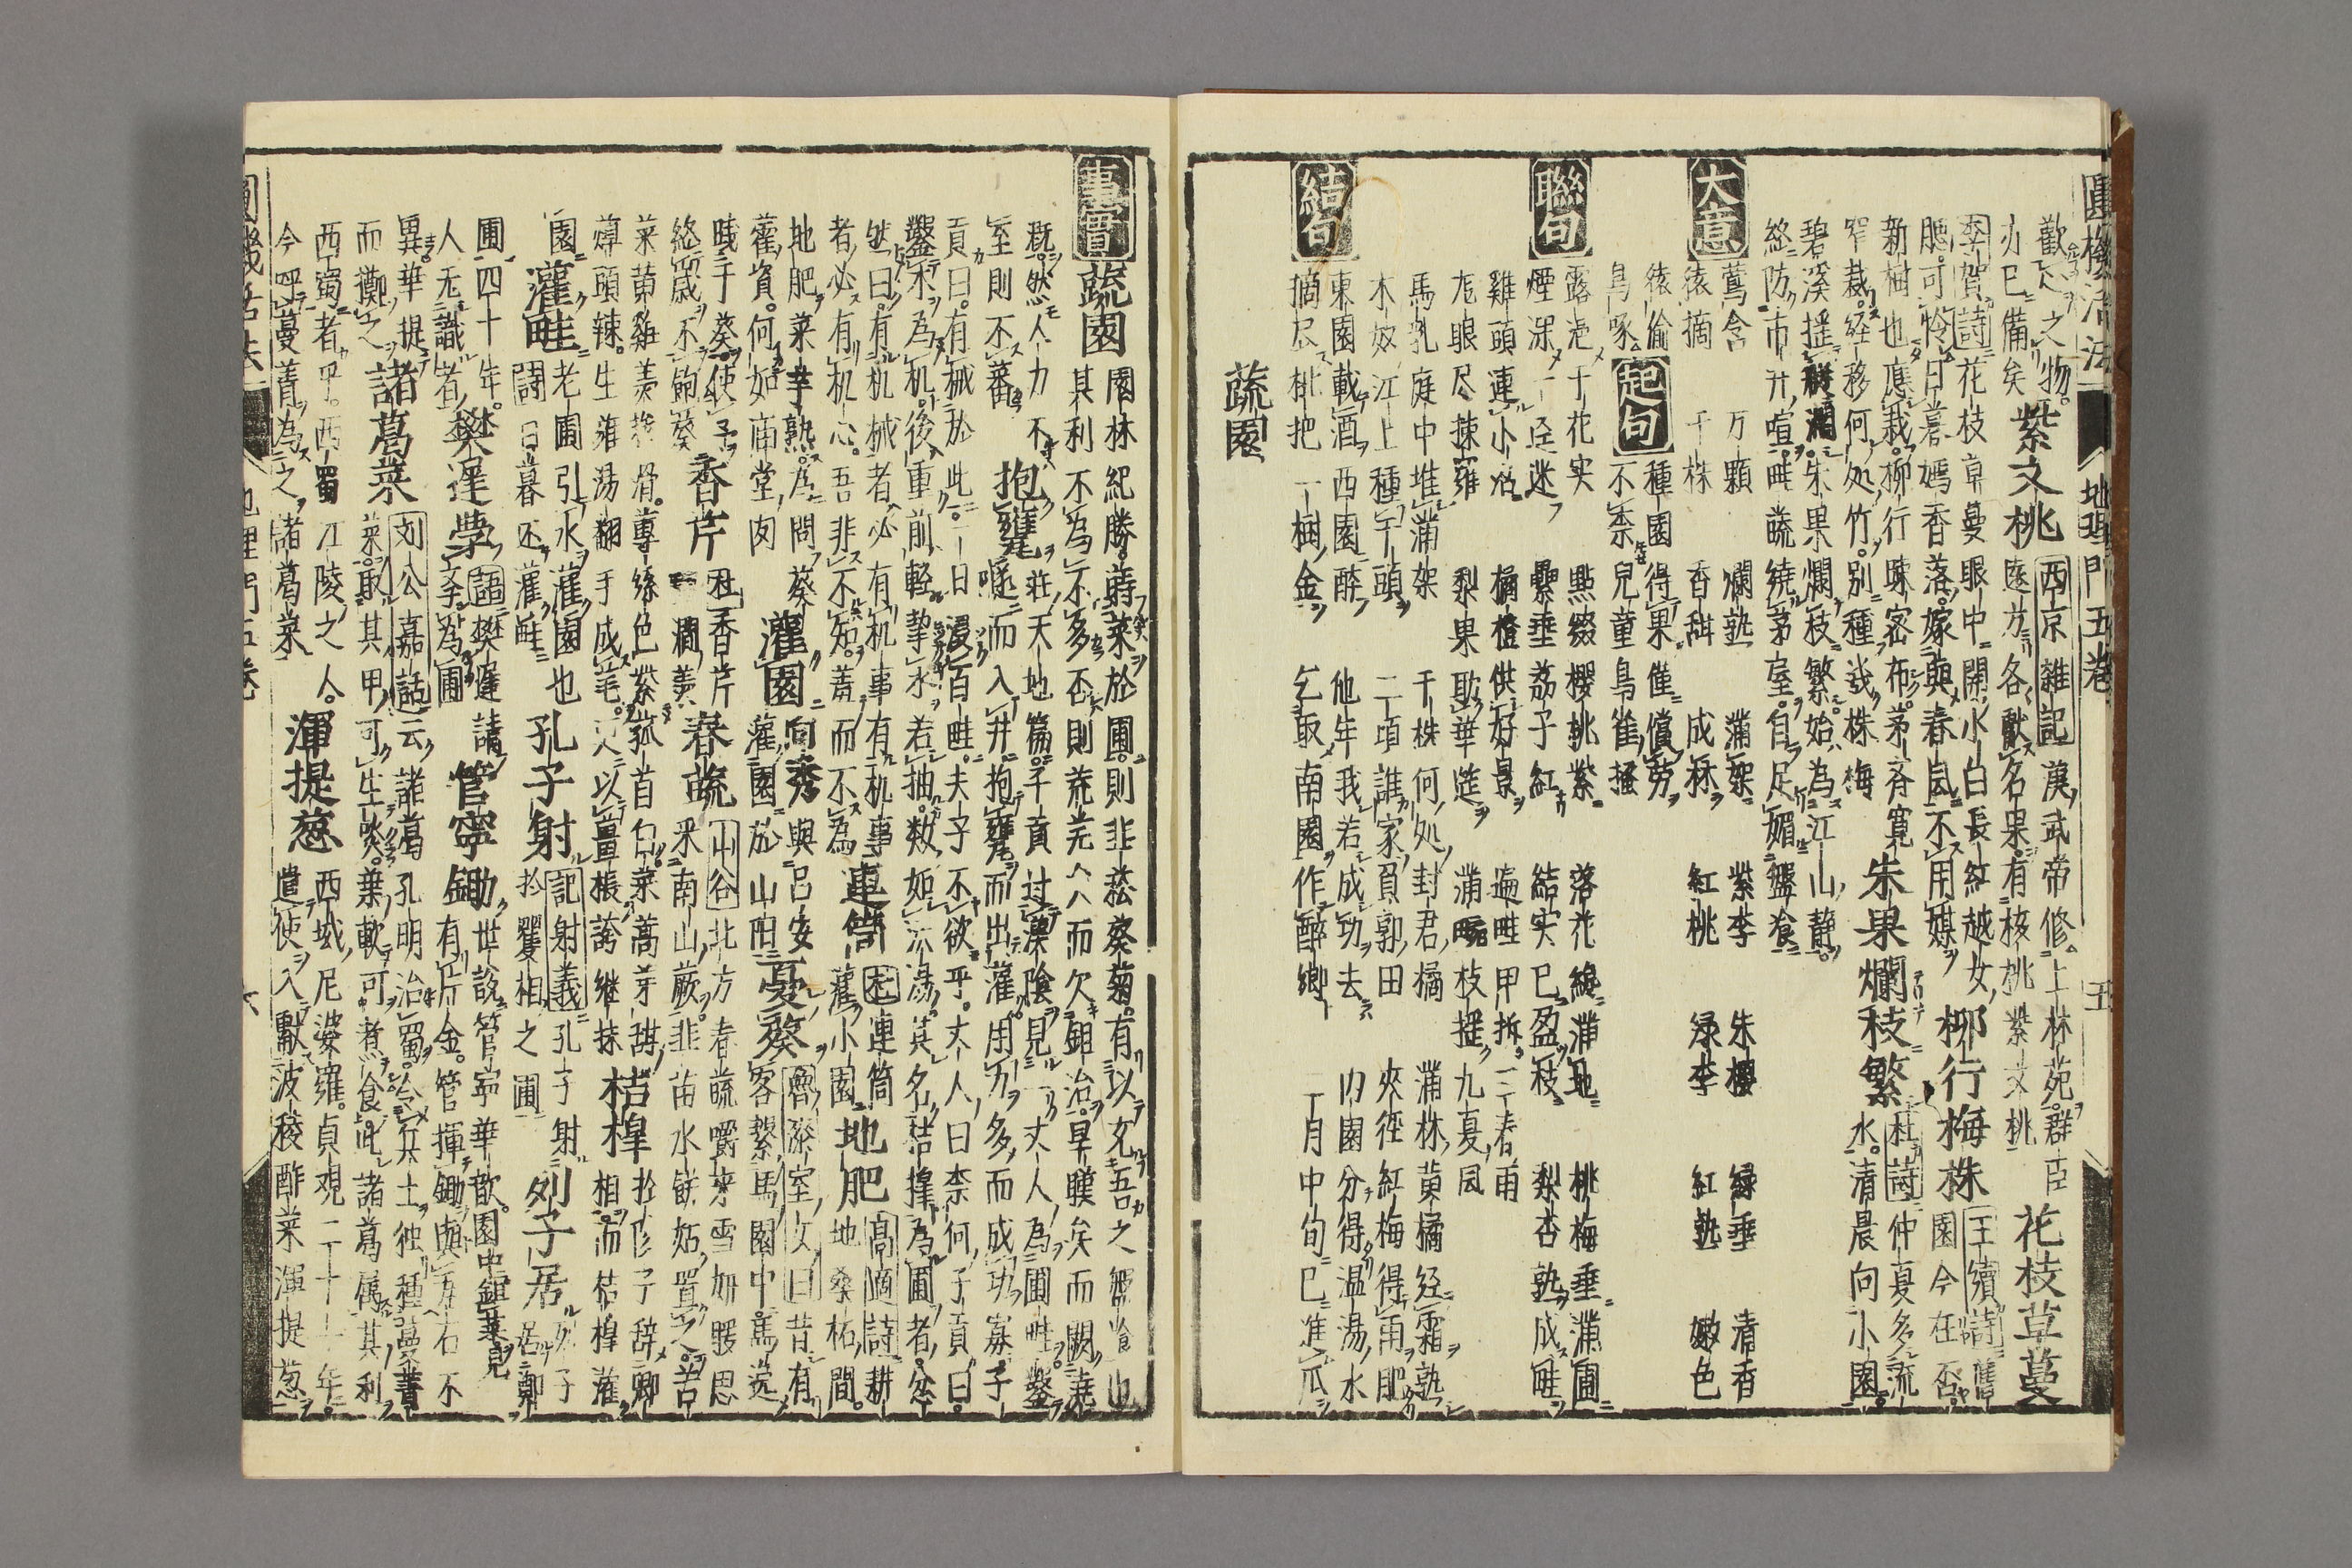 圓機活法 地理門五卷 五
歡人之物
亦已備矣 紫文桃 西京雜記 漢武帝修上林苑群臣
遠方各獻名果有核桃紫文桃 花枝草蔓
李賀詩 花枝草蔓眼中開小白長紅越女
腮可怜日暮嫣香落嫁與春風不用媒 柳行梅株 王績詩 舊
園今在否
新樹也應栽柳行疎密布茅斉寛
窄裁経移何処竹別種幾株梅 朱果爛枝繁 杜詩 仲夏多流
水清晨向小園
碧溪揺艇濶朱果爛枝繁始為江山静
終防市井喧畦蔬繞茅室自足媚盤飧
大意
鶯含 万顆 爛熟 蒲架 紫李 朱櫻 緑垂 清香
猿摘 千株 香甜 成秝 紅桃 緑李 紅熟 嫩色
起句
猿偷 種園得果僅償労
鳥啄 不柰兒童鳥雀搔
聯句
露浥千花実 點綴櫻桃紫 落花繞蒲地 桃梅垂蒲圃
煙深一迳迷 纍垂荔子紅 結実已盈枝 梨杏熟成畦
雞頭連小沼 橘橙供好景 遍畦甲拆三春雨
尨眼尽揀籬 梨果敢華筵 蒲畹枝揺九夏風
馬乳庭中堆蒲架 千株何処封君橘 蒲林黄橘経霜熟
木奴江上種千頭 二頃誰家負郭田 夾徑紅梅得雨肥
結句
東園載酒西園醉 他年我若成功去 内園分得温湯水
摘尽枇把一樹金 乞取南園作醉郷 二月中旬已進瓜
蔬園
事實
蔬園 園林紀勝蒔菜於圃則韭菘葵菊有以充吾之盤飧也
其利不為不多否則荒荒々而欠鉏治旱暵矣而闕澆
漑然人力不
至則不蕃 抱甕 莊天地篇子貢过漢陰見一丈人為圃畦鑿
隧而入井抱甕而出灌用力多而成功寡子
貢曰有械於此一日浸百畦夫子不欲乎丈人曰柰何子貢曰
鑿木為机後重前軽挈水若抽数如泆湯其名桔槹為圃者忿
然曰有机械者必有机事有机事
者必有机心吾非不知羞而不為 連筒 杜 連筒
灌小園 地肥 高適詩 耕
地桑柘間
地肥菜常熟為問葵
藿資何如廟堂肉 灌園 向秀與呂安
灌園於山陽 憂葵 魯漆室女曰昔有
客繫馬園中馬逸
踐于葵使予
終歳不飽葵 香芹 杜 香芹
碧澗羹 春蔬 山谷 北方春蔬嚼氷雪妍暖思
采南山蕨韭苗水餅姑置之苦
菜黄雞羹糝滑蓴絲色紫菰首白菜蒿芽甜
蓴頭辣生菹湯翻手成芼更以薑橙誇継抹 桔槹 於陵子辞卿
相而桔槹灌
園 灌畦 老圃引水灌園也
闘 日暮还灌畦 孔子射 記射義 孔子射
於矍相之圃 列子居 列子
居鄭
圃四十年
人无識者 樊遲学 語 樊遲請
学為圃 管寧鋤 世説管寧華歆園中鋤菜見
有片金管揮鋤與瓦石不
異華提
而擲之 諸葛菜 刘公嘉話 云諸葛孔明治蜀令兵士独種蔓菁
菜取其甲可生啖葉軟可煮食此諸葛属其利
西蜀者乎西蜀江陵之人
今呼蔓菁為之諸葛菜 渾提葱 西域尼婆羅貞観二十一年
遣使入獻波稜酢菜渾提葱